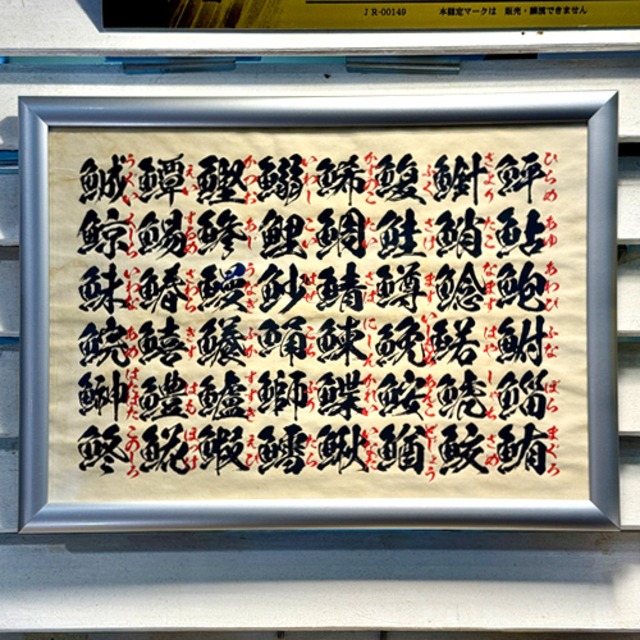 JR-00149 本認定マークは 販売・譲渡できません
鮃 ひらめ 鮎 あゆ 鮑 あわび 鮒 ふな 鯔 ぼら 鮪 まぐろ
さより 鮹 たこ 鯰 なまず 鰙 はや 鯱 しゃち 鮫 さめ
鰒 ふぐ 鮭 さけ 鱒 ます 鮸 鮟 あんこう 鰌 どじょう
鯑 かずのこ 鯛 たい 鯖 さば 鰊 にしん 鰈 かれい 鰍
鰯 いわし 鯉 こい 魦 はぜ 鯒 こち 鰤 ぶり 鱈 たら
鰹 かつお 鯵 あじ 鰻 うなぎ 鱶 ふか 鱸 すずき 鰕 えび
鱏 えい 鯣 するめ 鰆 さわら 鱚 きす 鱧 はも 𩸽 ほっけ
鯎 うぐい 鯨 くじら 鮇 いわな 鯇 あめ 鰰 はたはた 鮗 このしろ